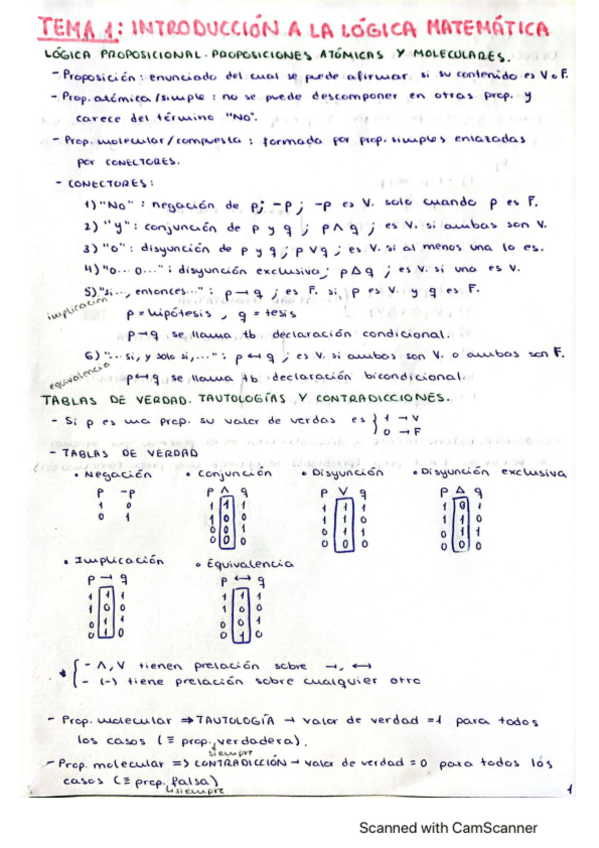 TEMA 1: INTRODUCCIÓN A LA LÓGICA MATEMÁTICA
LÓGICA PROPOSICIONAL. PROPOSICIONES ATÓMICAS Y MOLECULARES.
- Proposición: enunciado del cual se puede afirmar si su contenido es V o F.
- Prop. atómica/simple: no se puede descomponer en otras prop. y
carece del término "No".
- Prop. molecular/compuesta: formada por prop. simples enlazadas
por CONECTORES.
- CONECTORES:
1) "No": negación de p; -p; -p es V. solo cuando p es F.
2) "y": conjunción de p y q; p ∧ q; es V. si ambas son V.
3) "o": disyunción de p y q; p ∨ q; es V. si al menos una lo es.
4) "o... o...": disyunción exclusiva; p Δ q; es V. si una es V.
5) "si..., entonces...": p → q; es F. si, p es V. y q es F.
implicación
p = hipótesis, q = tesis
p → q se llama tb declaración condicional.
6) "... si, y solo si,...": p ↔ q; es V. si ambas son V. o ambas son F.
equivalencia
p ↔ q se llama tb declaración bicondicional.
TABLAS DE VERDAD. TAUTOLOGÍAS Y CONTRADICCIONES.
- Si p es una prop. su valor de verdas es { 1 → V
0 → F
- TABLAS DE VERDAD
• Negación • Conjunción • Disyunción • Disyunción exclusiva
p -p p ∧ q p ∨ q p Δ q
1 0 1 1 1 1 1 1 1 0 1
0 1 1 0 0 1 1 0 1 1 0
0 0 1 0 1 1 0 1 1
0 0 0 0 0 0
• Implicación • Equivalencia
p → q p ↔ q
1 1 1 1 1 1
1 0 0 1 0 0
0 1 1 0 0 1
0 1 0 0 1 0
* { - ∧, ∨ tienen prelación sobre →, ↔
- (-) tiene prelación sobre cualquier otro
- Prop. molecular ⇒ TAUTOLOGÍA → valor de verdad = 1 para todos
los casos (≡ prop. verdadera).
siempre
- Prop. molecular => CONTRADICCIÓN → valor de verdad = 0 para todos los
casos (≡ prop. falsa)
siempre
1
Scanned with CamScanner